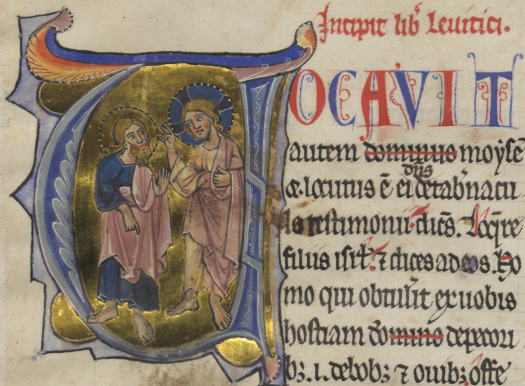 Incipit lib Levitici.
VOCAVIT
autem dominus moysē
dn̄s
& locutus ē ei de tab̄nacu
lo testimonii dicēs. Loq̄re
filiis isrl̄ ⁊ dices ad eos. Ho
mo qui obtul̄it ex uobis
hostiam domino de pecori
bꝫ .i. de bobꝫ ⁊ ouibꝫ offe